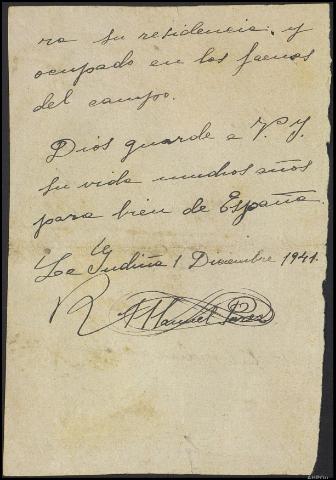 ra su residencia, y
ocupado en las faenas
del campo.
Dios guarde a V. y
su vida muchos años
para bien de España.
La Gudiña 1 Diciembre 1941.
Manuel